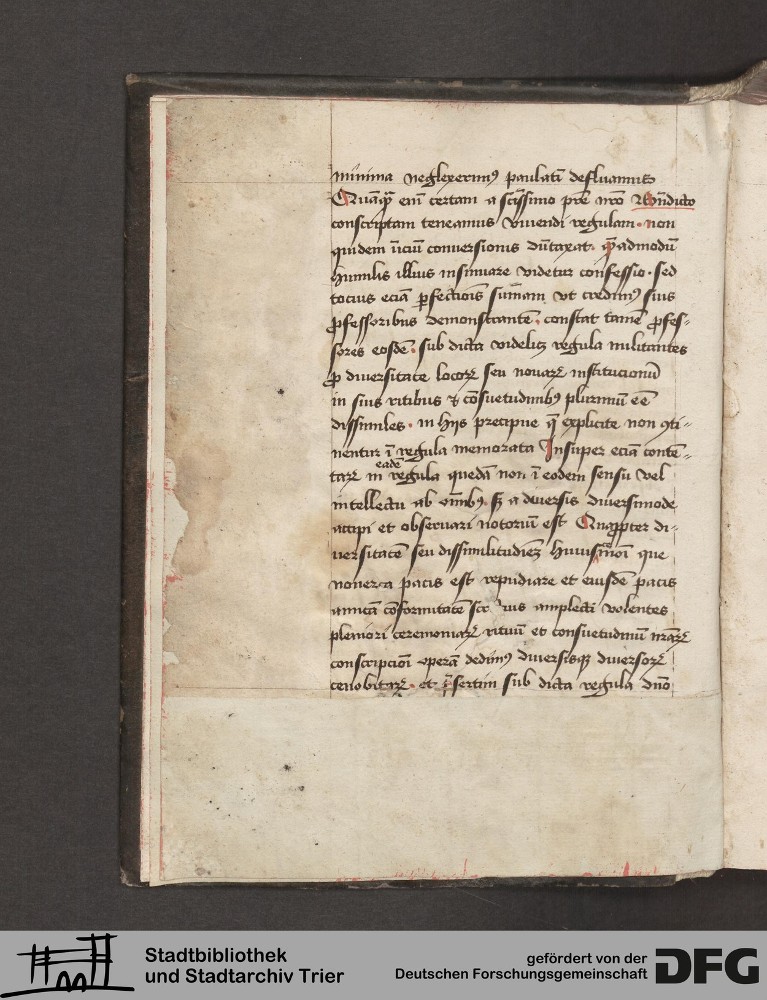 minima neglexerimꝯ paulatī defluamus
Quāqꝫ em̄ certam a sctīssimo pr̄e nr̄o Bn̄dicto
conscriptam teneamus viuendi regulam · non
quidem iniciū conuersionis dūtaxat · qȩadmodū
humilis illius insinuare videtur confessio · sed
tocius eciā ꝑfectiōis sum̄am vt credimꝯ suis
ꝓfessoribus demonstrantē · constat tamē ꝓfes-
sores eosdē · sub dicta videlicꝫ regula militantes
ꝓ diuersitate locoꝝ seu nouaꝝ institucionū
in suis ritibus & cōsuetudinibꝯ plurimū eē
dissimiles · in hijs precipue q̄ explicite non ꝯti-
nentur ī regula memorata Insuper eciā conten-
taꝝ in eadē regula quedā non ī eodem sensu vel
intellectu ab om̄ibꝯ sꝫ a diuersis diuersimode
accipi et obseruari notoriū est Quaꝓpter di-
uersitatē seu dissimilitudinē huiusmōi que
nouerca pacis est repudiare et eiusdē pacis
amicā cōformitatē amplecti volentes
pleniori ceremoniaꝝ rituū et consuetudinū nr̄aꝝ
conscripcioni operā dedimꝯ diuersisqꝫ diuersoꝝ
cenobitaꝝ · et p̄sertim sub dicta regula dn̄o
Stadtbibliothek
und Stadtarchiv Trier
gefördert von der
Deutschen Forschungsgemeinschaft
DFG